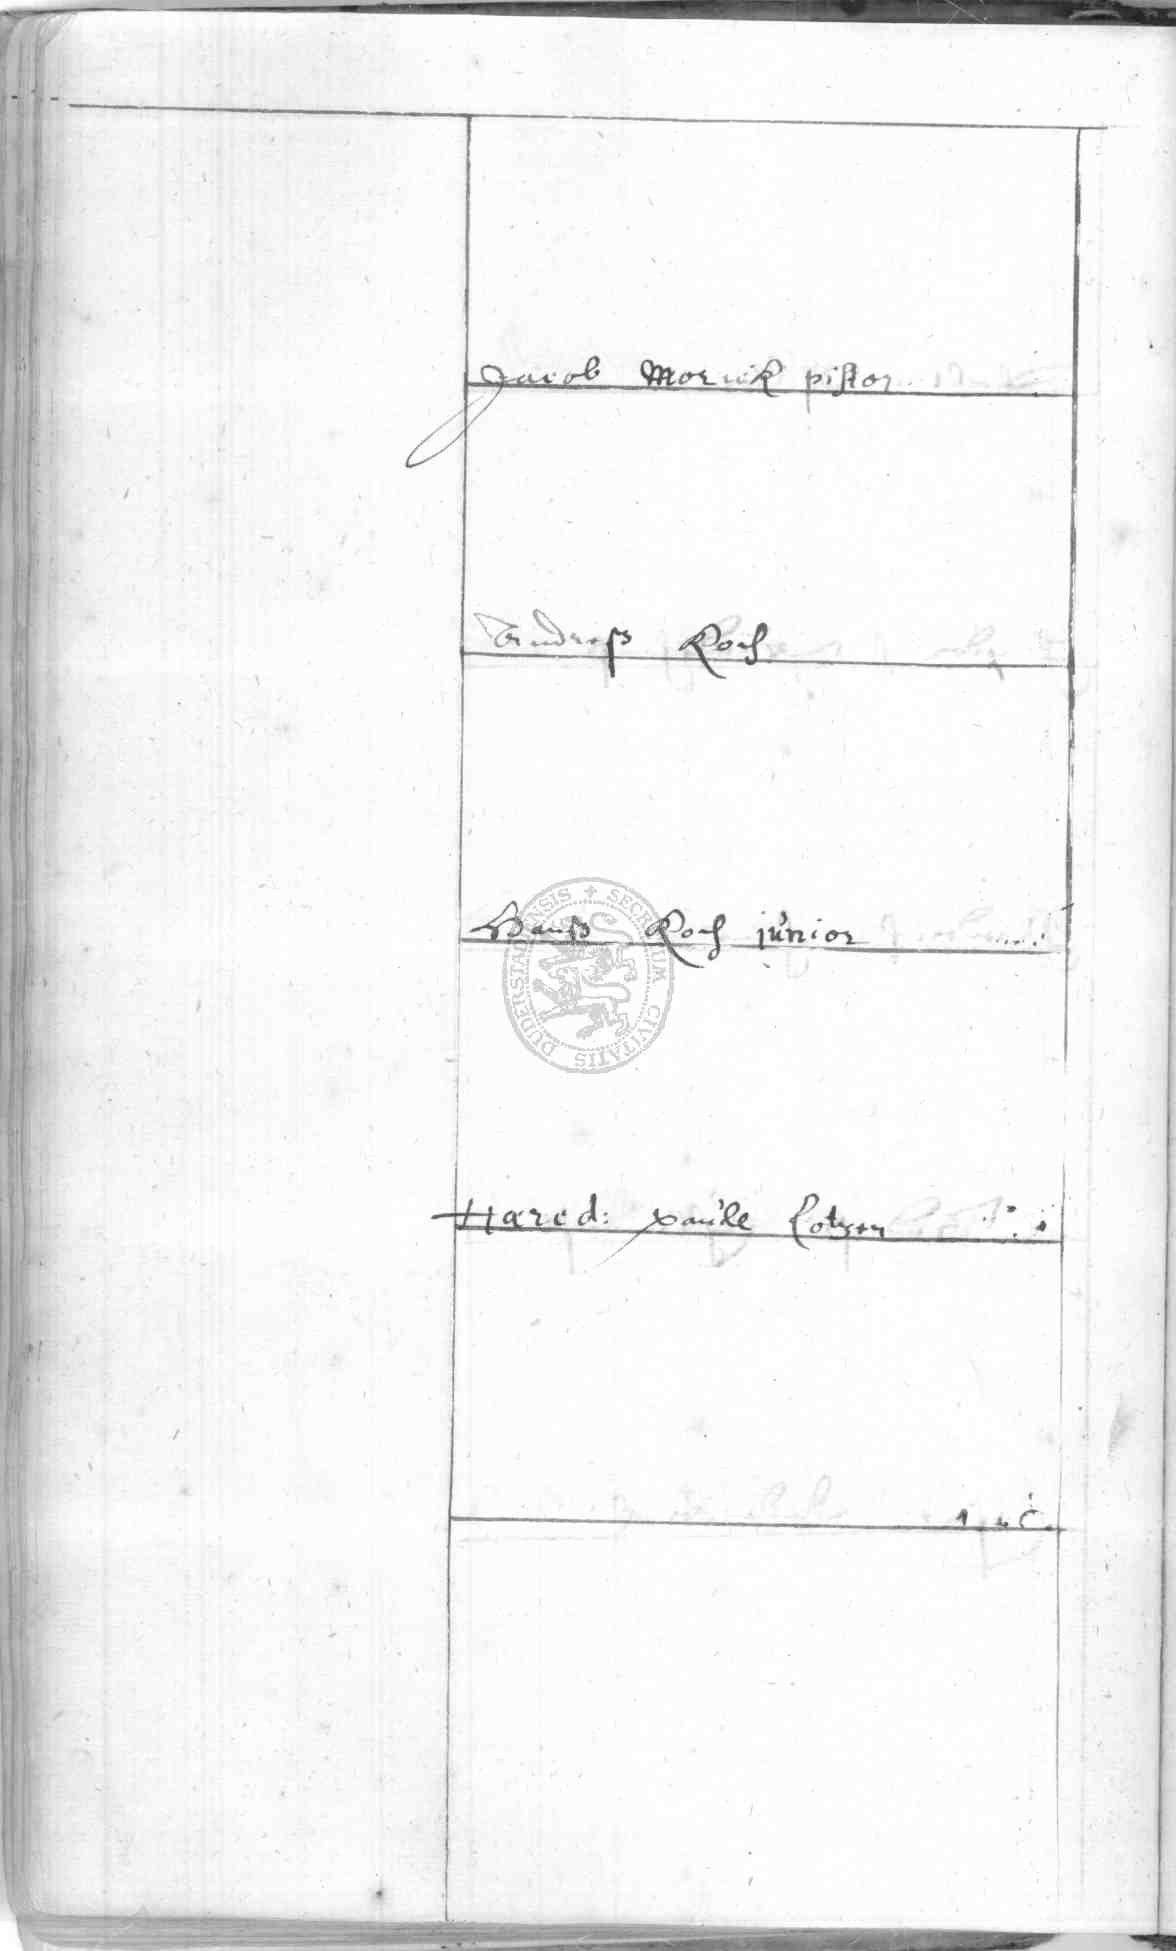 Jacob Morick pistor
Andreß Koch
Hanß Koch junior
Hæred: Paule
SECRETUM CIVITATIS DUDERSTADENSIS